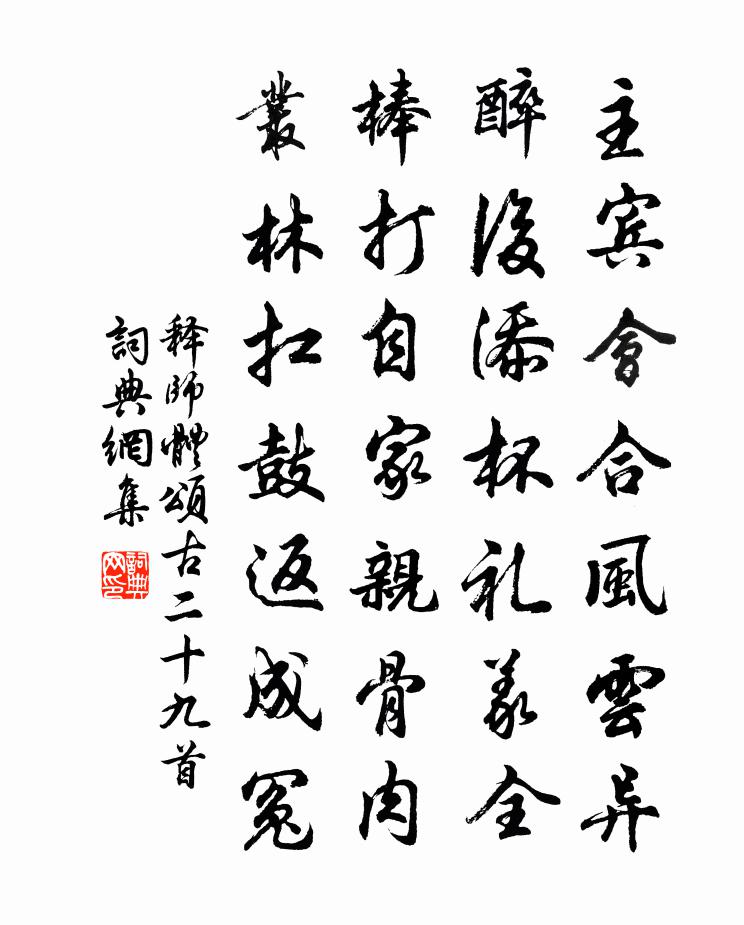 主賓會合風雲异
醉後添杯礼義全
棒打自家親骨肉
叢林扛鼓返成冤
释師體頌古二十九首
詞典網集
詞典网印